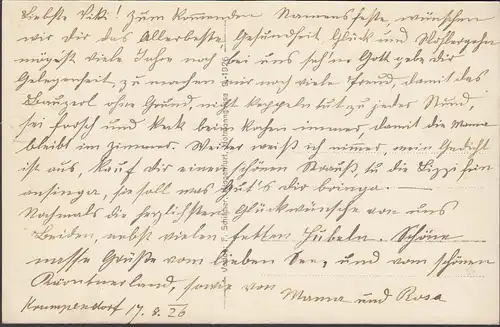 Liebste Viki! Zum kommenden Namensfeste, wünschen
wir Dir das Allerbeste Gesundheit Glück und Wohlergehn
mögest viele Jahre noch bei uns sein Gott gebe dir
Gelegenheit, zu machen mir noch viele Freud, damit das
ohne Grund, nicht tut zu jeder Stund,
sei forsch und keck beim Kochen immer, damit die Mama
bleibt im Zimmer. Weiter weiß ich nimer, mein Gedicht
ist aus, kauf dir einen schönen Strauß, tu die Lizzi fein
ansinga, sie soll was Gut's dir bringa.
Nochmals die herzlichsten Glückwünsche von uns
Beiden, nebst vielen fetten Schöne
nasse Grüße vom lieben See, und vom schönen
Kärntnerland, sowie von
Mama und Rosa
Krumpendorf 17.8.26